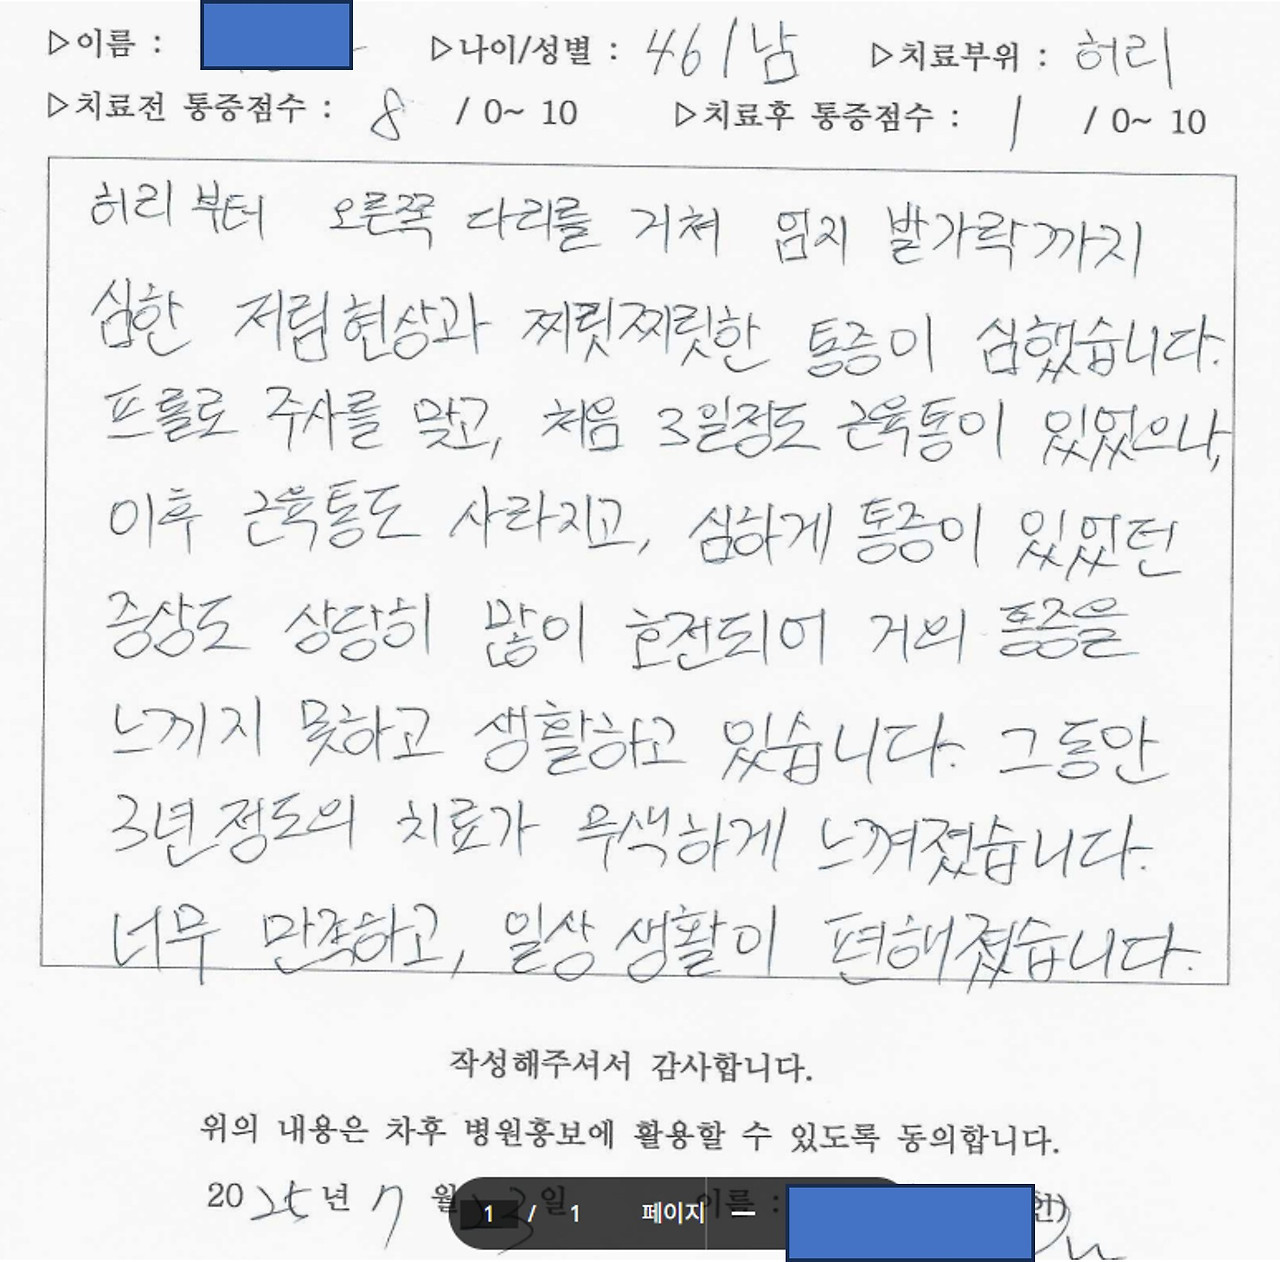 ▷이름 : ▷나이/성별 : 46 / 남 ▷치료부위 : 허리
▷치료전 통증점수 : 8 / 0~ 10 ▷치료후 통증점수 : 1 / 0~ 10
허리부터 오른쪽 다리를 거쳐 엄지 발가락까지
심한 저림현상과 찌릿찌릿한 통증이 심했습니다.
프롤로 주사를 맞고, 처음 3일정도 근육통이 있었으나,
이후 근육통도 사라지고, 심하게 통증이 있었던
증상도 상당히 많이 호전되어 거의 통증을
느끼지 못하고 생활하고 있습니다. 그동안
3년정도의 치료가 무색하게 느껴졌습니다.
너무 만족하고, 일상생활이 편해졌습니다.
작성해주셔서 감사합니다.
위의 내용은 차후 병원홍보에 활용할 수 있도록 동의합니다.
2025년 7월 일 이름 :
1 / 1 페이지